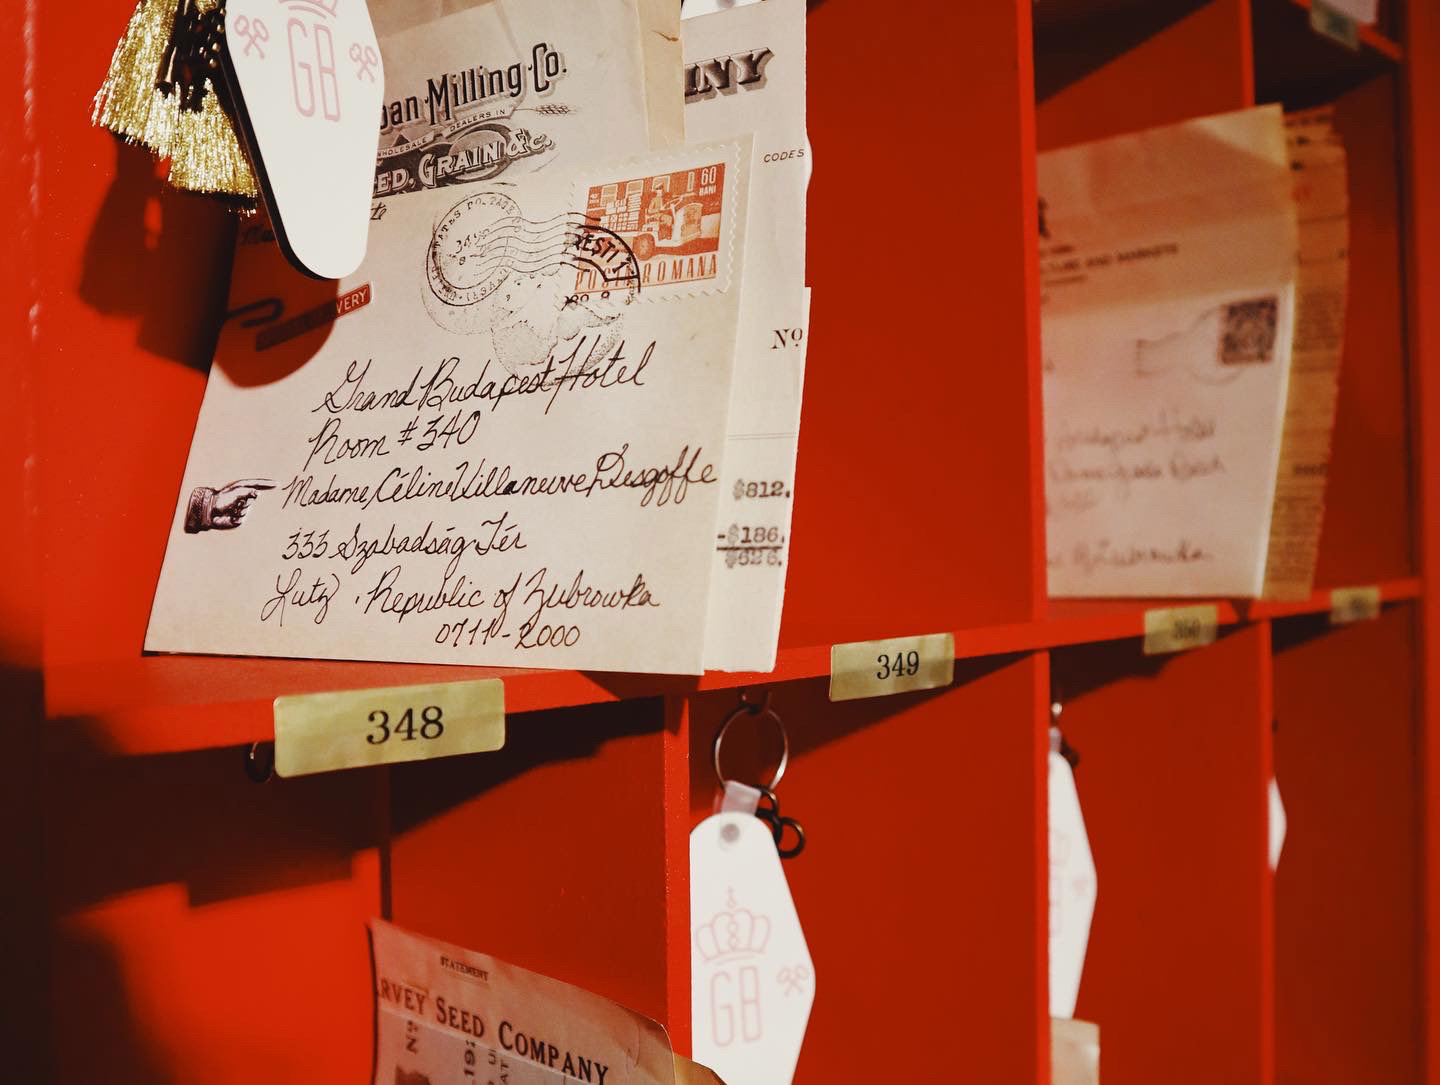 GB
Milling Co.
WHOLESALE DEALERS IN
GRAIN &c.
INY
CODES
60
BANI
POSTA ROMANA
VERY
Grand Budapest Hotel
Room # 340
Madame Céline Villaneuve Desgoffe
333 Szabadság Tér
Lutz . Republic of Zubrowka
0711-2000
No
$812.
-$186.
$626.
348
349
350
GB
STATEMENT
RVEY SEED COMPANY
No